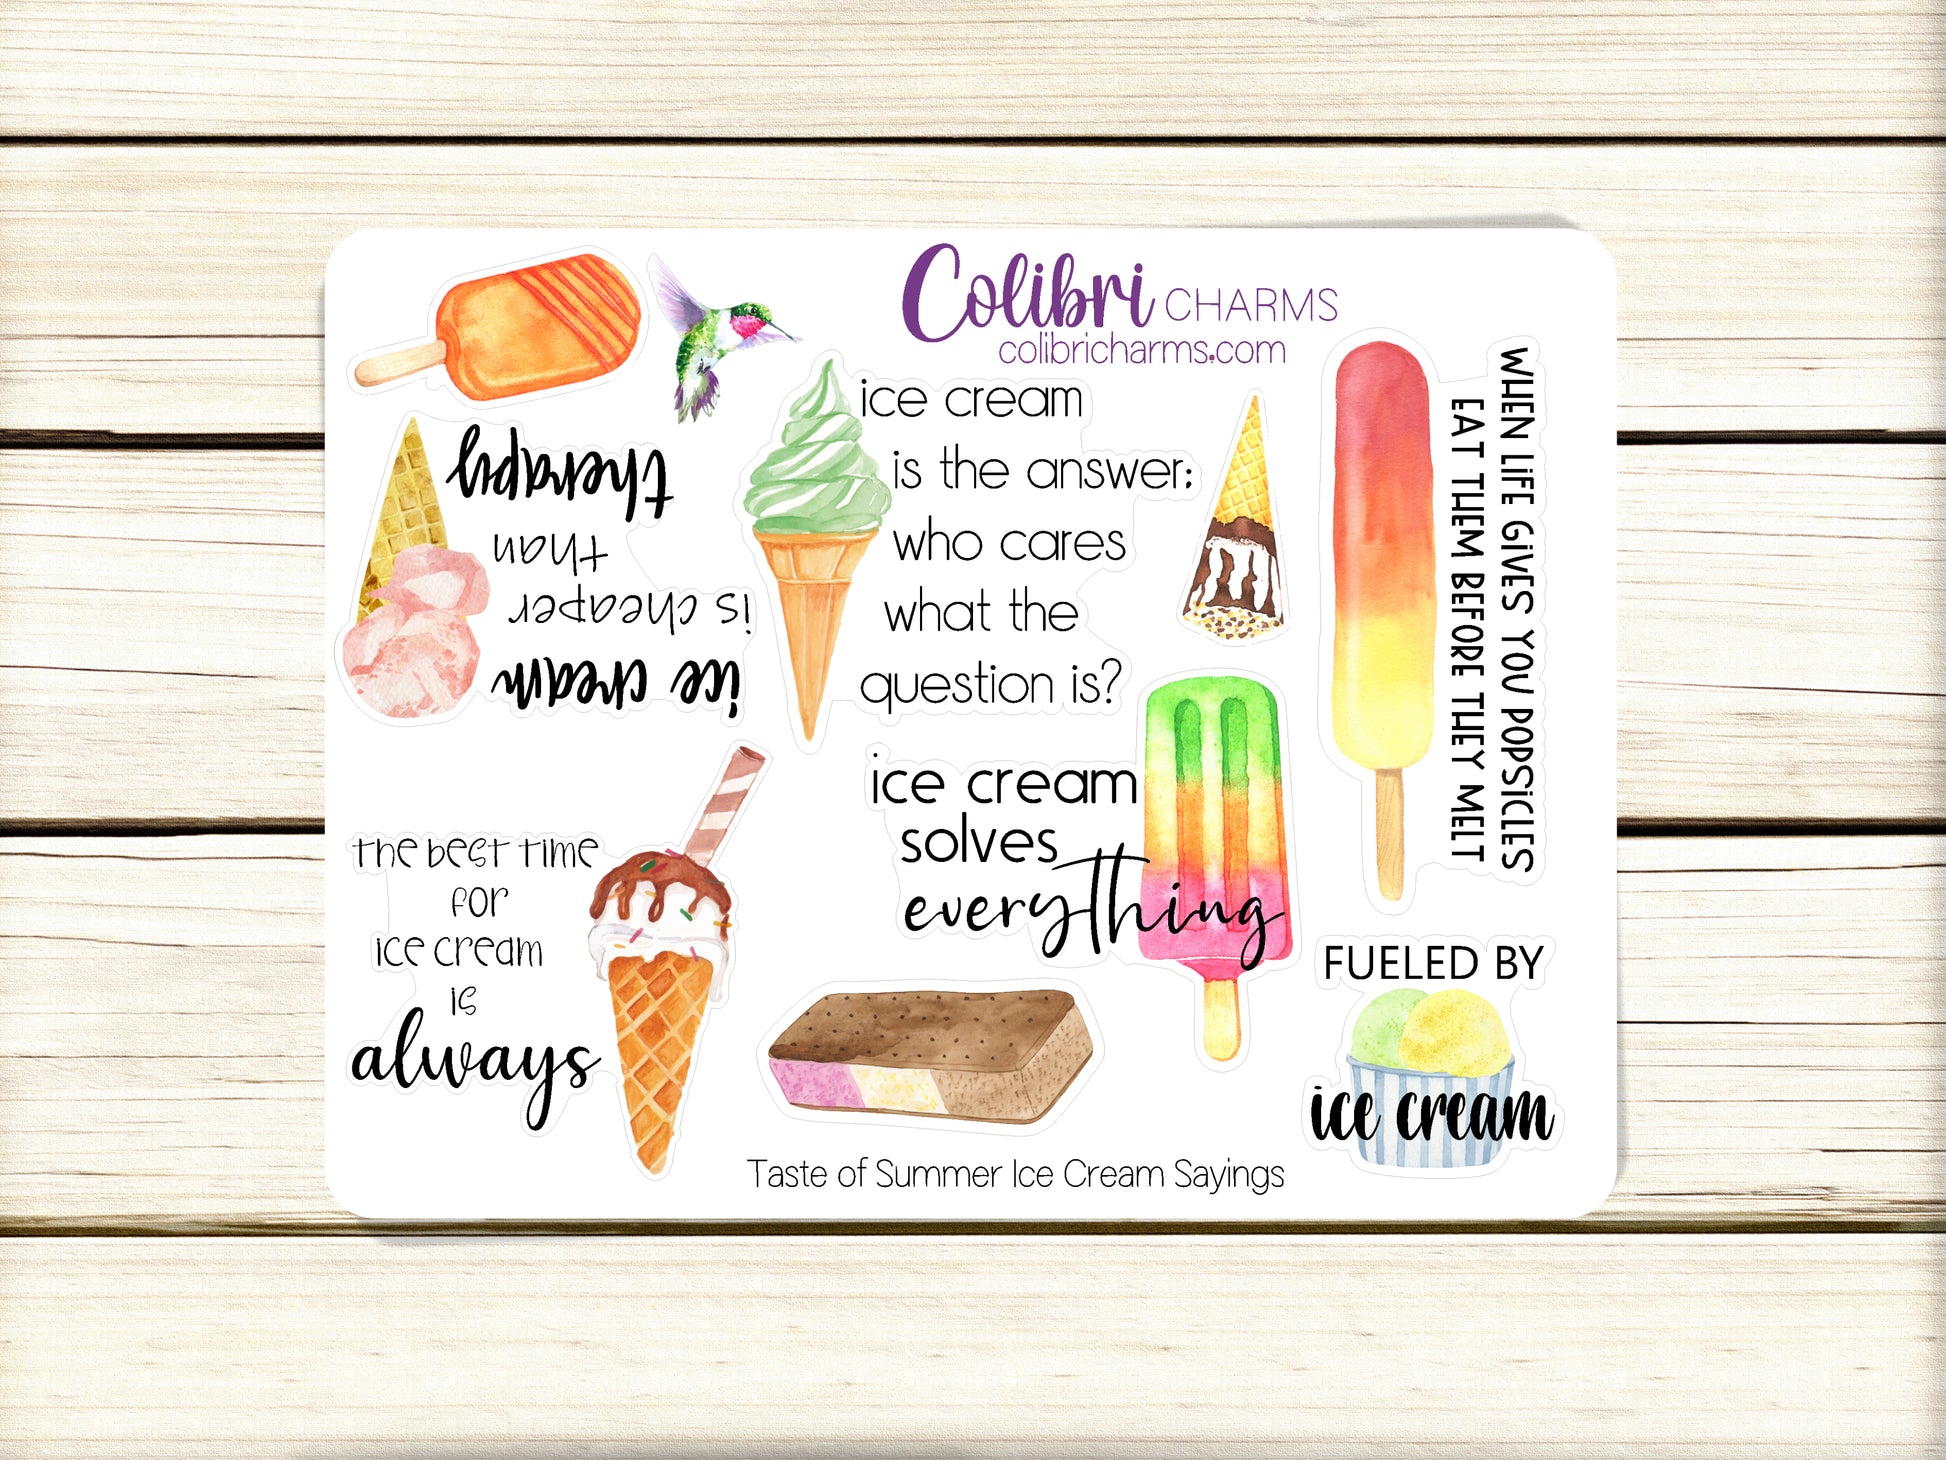 Colibri CHARMS
colibricharms.com
ice cream
is cheaper
than
therapy
ice cream
is the answer:
who cares
what the
question is?
WHEN LIFE GIVES YOU POPSICLES
EAT THEM BEFORE THEY MELT
ice cream
solves
everything
the best time
for
ice cream
is
always
FUELED BY
ice cream
Taste of Summer Ice Cream Sayings